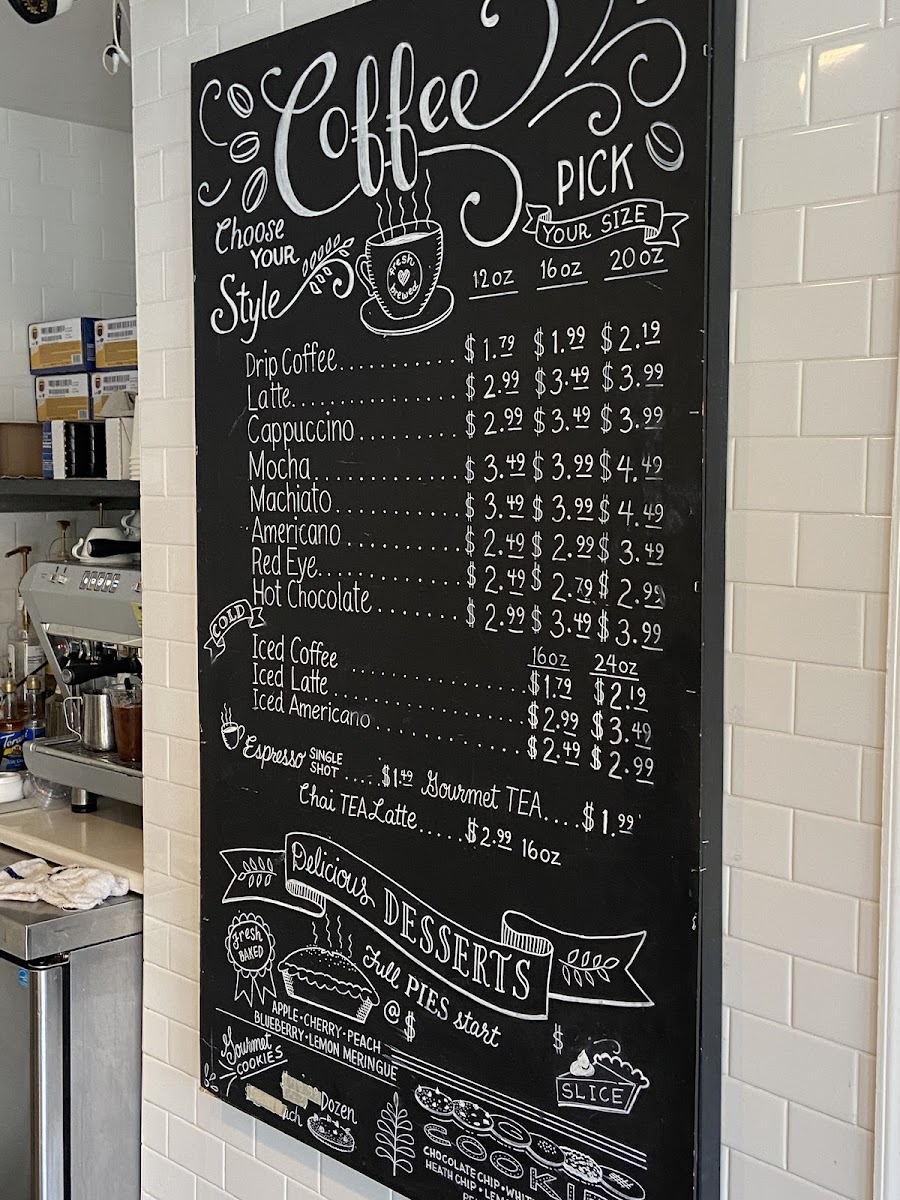 Coffee
PICK
YOUR SIZE
Choose
YOUR
Style
fresh
brewed
12oz 16oz 20oz
Drip Coffee.............. $1.79 $1.99 $2.19
Latte.................... $2.99 $3.49 $3.99
Cappuccino............ $2.99 $3.49 $3.99
Mocha.................. $3.49 $3.99 $4.49
Machiato............... $3.49 $3.99 $4.49
Americano............ $2.49 $2.99 $3.49
Red Eye................ $2.49 $2.79 $2.99
Hot Chocolate........ $2.99 $3.49 $3.99
COLD
16oz 24oz
Iced Coffee .................... $1.79 $2.19
Iced Latte...................... $2.99 $3.49
Iced Americano ................ $2.49 $2.99
Espresso SINGLE SHOT.....$1.49 Gourmet TEA....$1.99
Chai TEA Latte.....$2.99 16oz
Delicious DESSERTS
Fresh
BAKED
Full PIES start
@ $
APPLE•CHERRY•PEACH
BLUEBERRY•LEMON MERINGUE
$
SLICE
Gourmet
COOKIES
Dozen
CHOCOLATE CHIP•
HEATH CHIP•
Torani